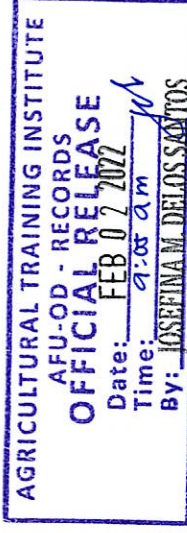 AGRICULTURAL TRAINING INSTITUTE
AFU-OD - RECORDS
OFFICIAL RELEASE
Date: FEB 02 2022
Time: 9:05 am
By: JOSEFINA M. DELOS SANTOS